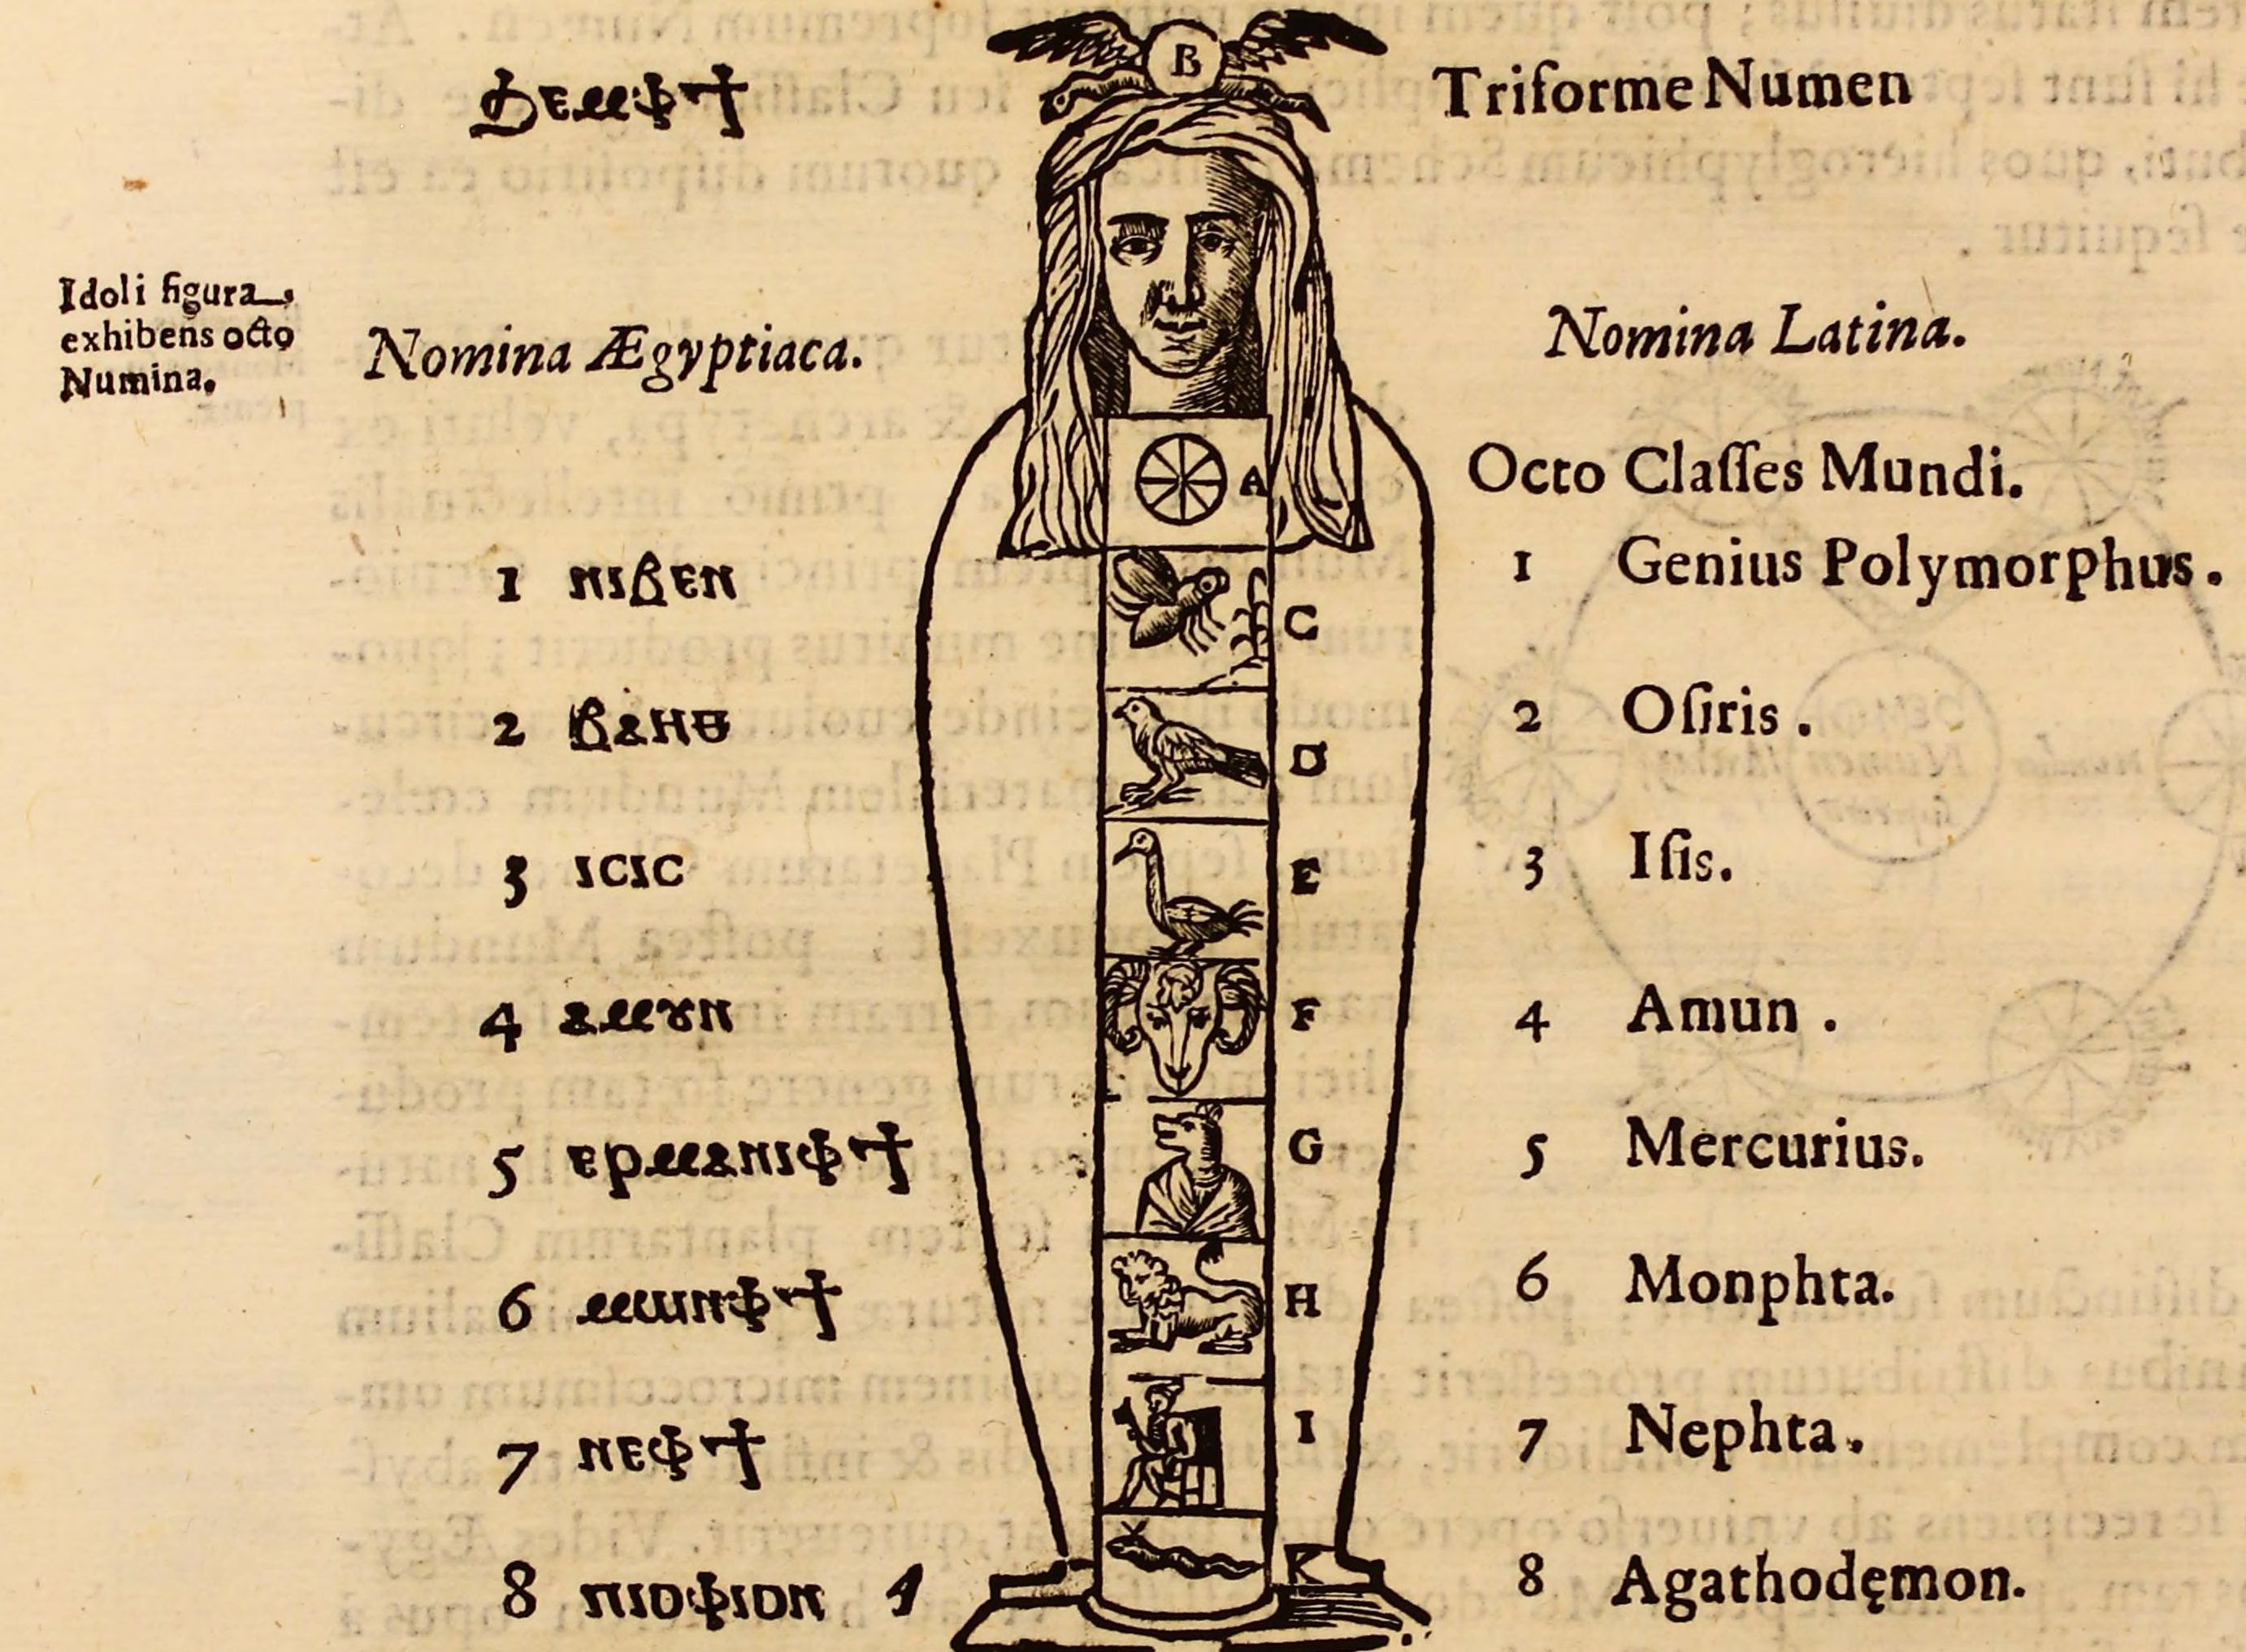 B
ϧⲉⲙⲫϯ
Triforme Numen
Idoli figura,
exhibens octo
Numina.
Nomina Ægyptiaca.
Nomina Latina.
A
Octo Claſſes Mundi.
1 ⲛⲓⲃⲉⲛ
C
1 Genius Polymorphus.
2 ⲃⲁⲏⲑ
D
2 Oſiris.
3 ⲓⲥⲓⲥ
E
3 Iſis.
4 ⲁⲙȣⲛ
F
4 Amun.
5 ⲉⲣⲙⲁⲛⲓⲫϯ
G
5 Mercurius.
6 ⲙⲱⲛⲫϯ
H
6 Monphta.
7 ⲛⲉⲫϯ
I
7 Nephta.
8 ⲡⲓⲟⲫⲓⲟⲛ
K
8 Agathodęmon.